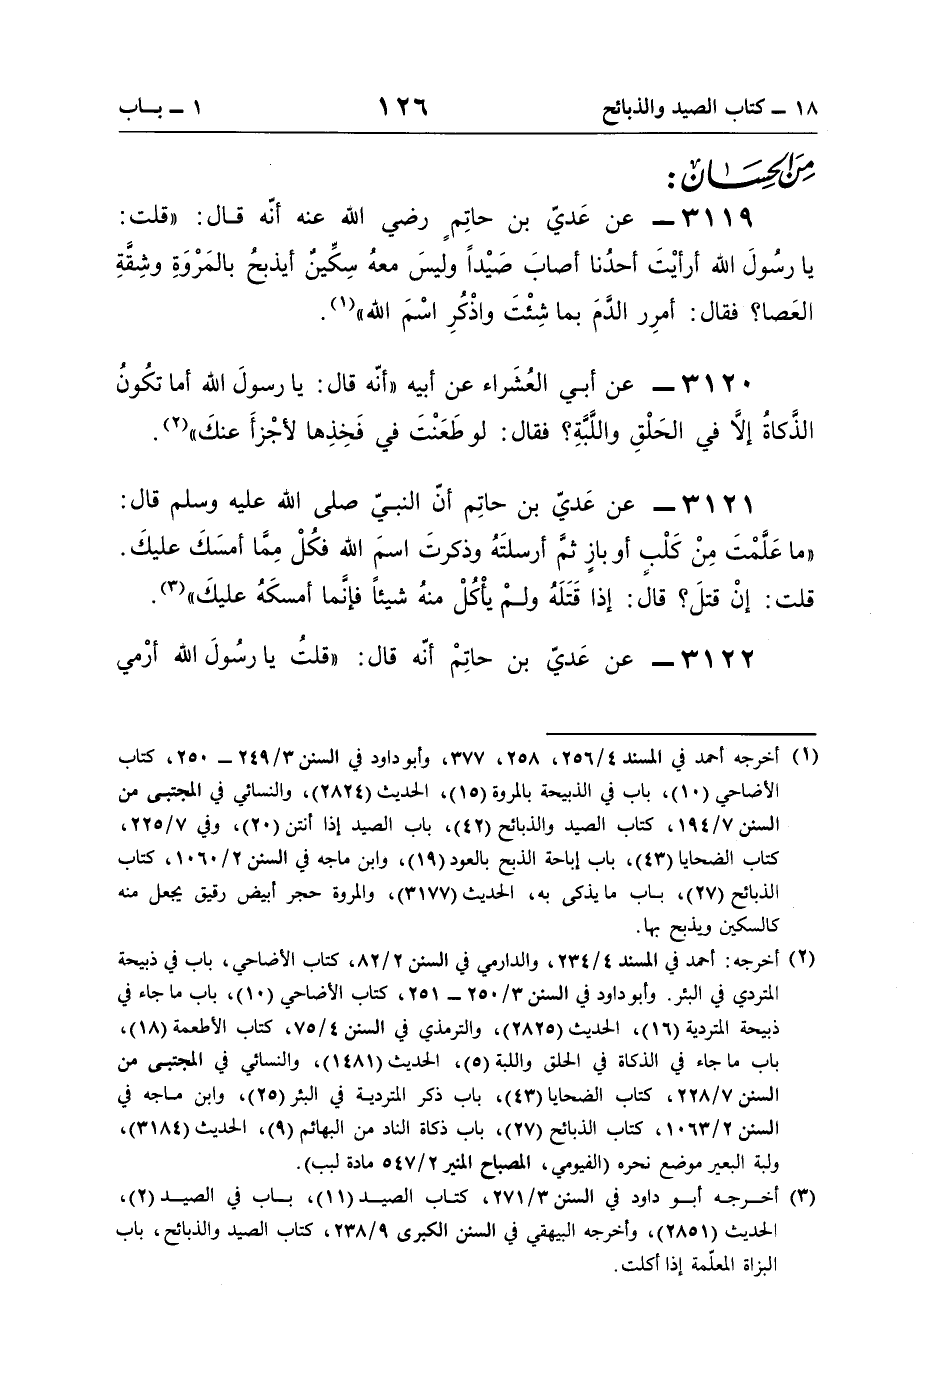 ١٨ ــ كتاب الصيد والذبائح ١٢٦ ١ ــ بــاب
مِنَ الحِسَان :
٣١١٩ ــ عن عَديّ بن حاتِمٍ رضي الله عنه أنّه قـال: «قلت:
يا رسُولَ الله أرأيْتَ أحدُنا أصابَ صَيْداً وليسَ معهُ سِكِّينٌ أيذبحُ بالمَرْوَةِ وشِقَّةِ
العَصا؟ فقال: أمرِر الدَّمَ بما شِئْتَ واذْكُرِ اسْمَ الله»(١).
٣١٢٠ ــ عن أبـي العُشَراء عن أبيه «أنّه قال: يا رسولَ الله أما تكُونُ
الذَّكاةُ إلَّا في الحَلْقِ واللَّبَّةِ؟ فقال: لو طَعَنْتَ في فَخِذِها لأجْزأَ عنكَ»(٢).
٣١٢١ ــ عن عَديّ بن حاتِم أنّ النبـيّ صلى الله عليه وسلم قال:
«ما عَلَّمْتَ مِنْ كَلْبٍ أو بازٍ ثمَّ أرسلتَهُ وذكرتَ اسمَ الله فكُلْ مِمَّا أمسَكَ عليكَ.
قلت: إنْ قتلَ؟ قال: إذا قَتَلَهُ ولـمْ يأْكُلْ منهُ شيئاً فإنَّما أمسكَهُ عليكَ»(٣).
٣١٢٢ ــ عن عَديّ بن حاتِمْ أنّه قال: «قلتُ يا رسُولَ الله أرْمي
(١) أخرجه أحمد في المسند ٢٥٦/٤، ٢٥٨، ٣٧٧، وأبو داود في السنن ٢٤٩/٣ ــ ٢٥٠، كتاب
الأضاحي (١٠)، باب في الذبيحة بالمروة (١٥)، الحديث (٢٨٢٤)، والنسائي في المجتبـى من
السنن ١٩٤/٧، كتاب الصيد والذبائح (٤٢)، باب الصيد إذا أنتن (٢٠)، وفي ٢٢٥/٧،
كتاب الضحايا (٤٣)، باب إباحة الذبح بالعود (١٩)، وابن ماجه في السنن ١٠٦٠/٢، كتاب
الذبائح (٢٧)، بـاب ما يذكى به، الحديث (٣١٧٧)، والمروة حجر أبيض رقيق يجعل منه
كالسكين ويذبح بها.
(٢) أخرجه: أحمد في المسند ٢٣٤/٤، والدارمي في السنن ٨٢/٢، كتاب الأضاحي، باب في ذبيحة
المتردي في البئر. وأبو داود في السنن ٢٥٠/٣ ــ ٢٥١، كتاب الأضاحي (١٠)، باب ما جاء في
ذبيحة المتردية (١٦)، الحديث (٢٨٢٥)، والترمذي في السنن ٧٥/٤، كتاب الأطعمة (١٨)،
باب ما جاء في الذكاة في الحلق واللبة (٥)، الحديث (١٤٨١)، والنسائي في المجتبـى من
السنن ٢٢٨/٧، كتاب الضحايا (٤٣)، باب ذكر المترديـة في البئر (٢٥)، وابن مـاجه في
السنن ١٠٦٣/٢، كتاب الذبائح (٢٧)، باب ذكاة الناد من البهائم (٩)، الحديث (٣١٨٤)،
ولبة البعير موضع نحره (الفيومي، المصباح المنير ٥٤٧/٢ مادة لبب).
(٣) أخـرجـه أبـو داود في السنن ٢٧١/٣، كتـاب الصيـد (١١)، بـاب في الصيـد (٢)،
الحديث (٢٨٥١)، وأخرجه البيهقي في السنن الكبرى ٢٣٨/٩، كتاب الصيد والذبائح، باب
البزاة المعلّمة إذا أكلت.